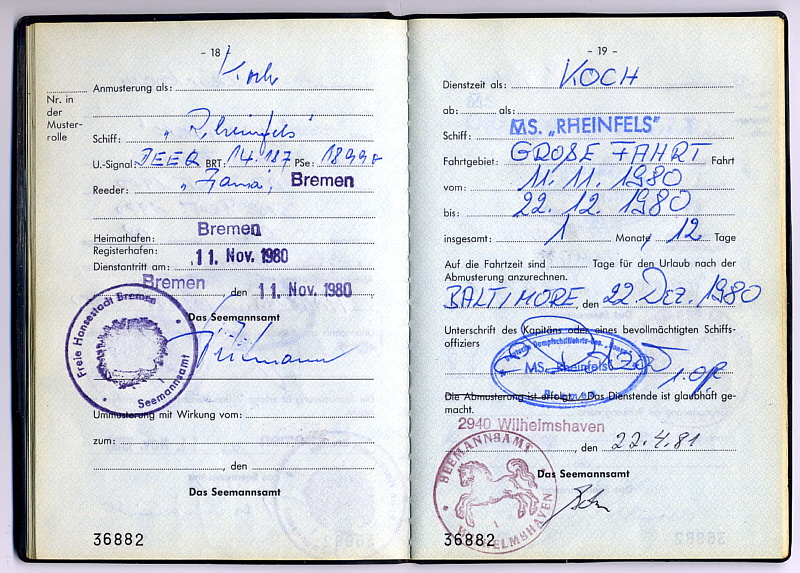 - 18 -
Nr. in
der
Muster-
rolle
Anmusterung als: Koch
Schiff: „Rheinfels“
U.-Signal: DEER BRT: 14.187 PSe: 18998
Reeder: „Hansa“, Bremen
Heimathafen: Bremen
Registerhafen:
Dienstantritt am: 11. Nov. 1980
Bremen, den 11. Nov. 1980
Das Seemannsamt
Freie Hansestadt Bremen
Seemannsamt
Ummusterung mit Wirkung vom:
zum:
, den
Das Seemannsamt
36882
- 19 -
Dienstzeit als: KOCH
ab: als:
Schiff: MS. „RHEINFELS“
Fahrtgebiet: GROßE FAHRT Fahrt
vom: 11. 11. 1980
bis: 22. 12. 1980
insgesamt: 1 Monate 12 Tage
Auf die Fahrtzeit sind Tage für den Urlaub nach der
Abmusterung anzurechnen.
BALTIMORE, den 22. DEZ. 1980
Unterschrift des Kapitäns oder eines bevollmächtigten Schiffs-
offiziers
MS. „Rheinfels“
Bremen
Die Abmusterung ist erfolgt. Das Dienstende ist glaubhaft ge-
macht.
2940 Wilhelmshaven
, den 22.4.81
SEEMANNSAMT
WILHELMSHAVEN
1
Das Seemannsamt
36882